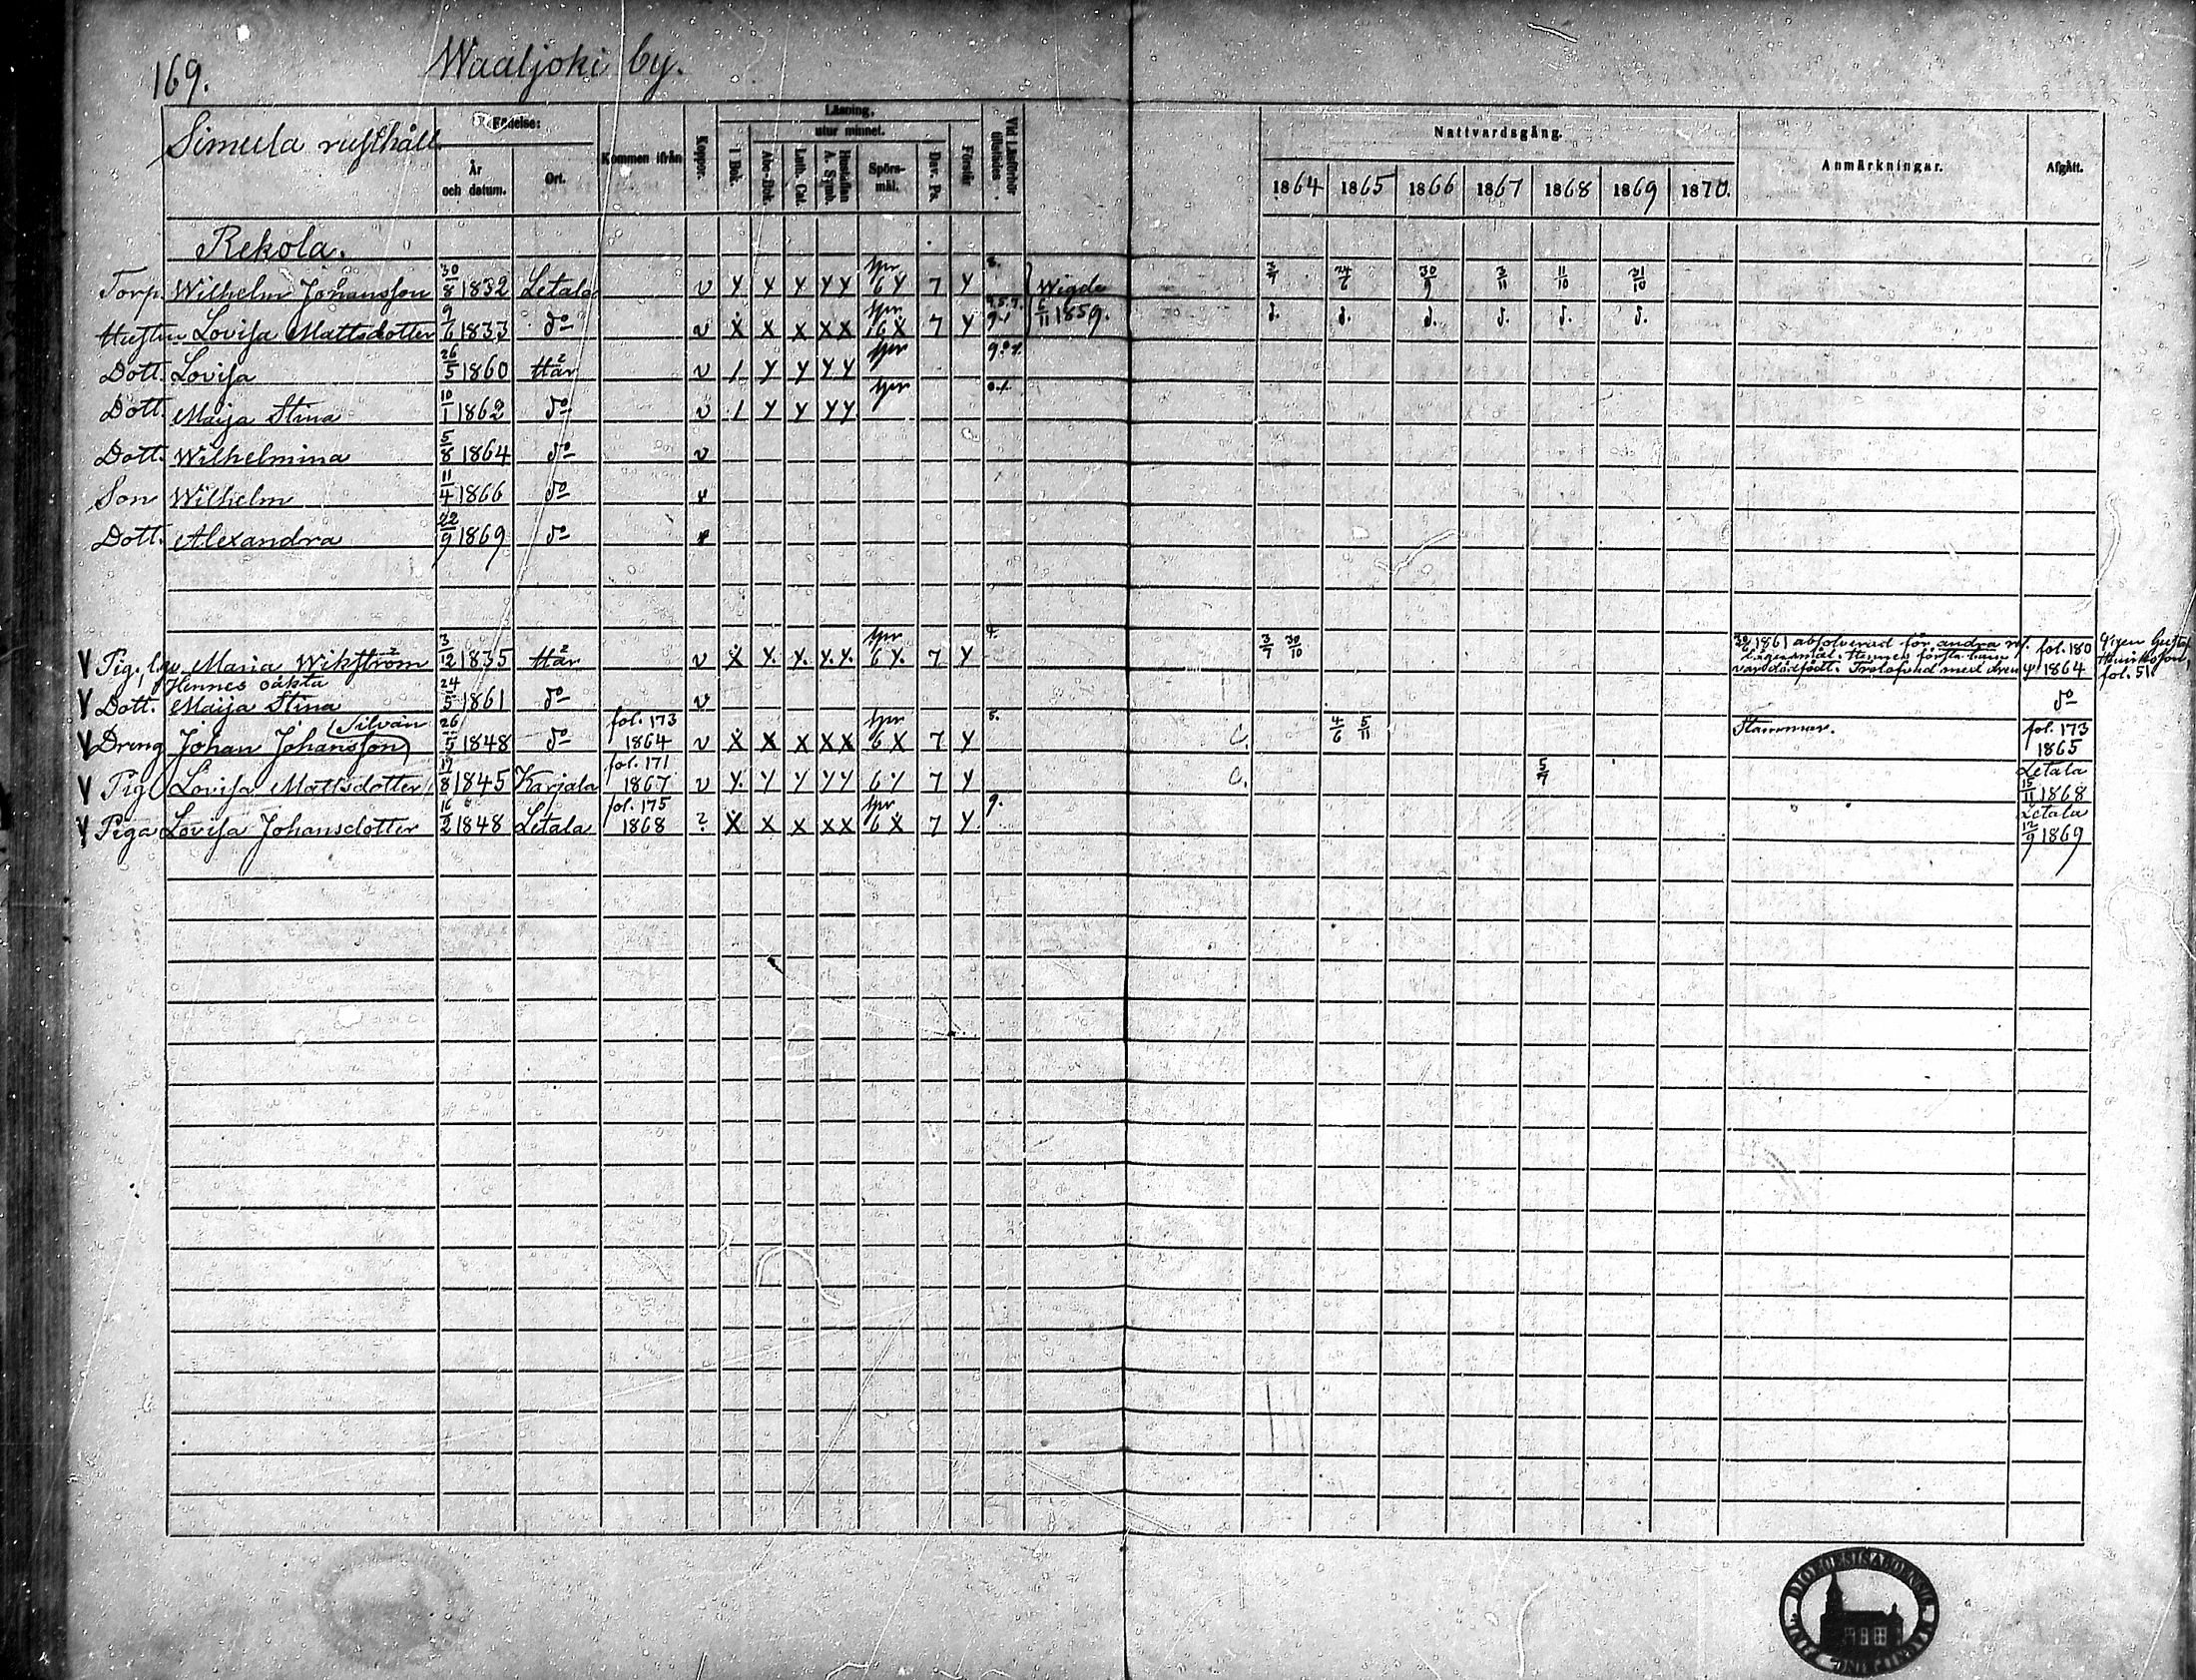 169.
Waaljoki by.
Simula rusthåll.
Födelse:
År och datum.
Ort.
Kommen ifrån
Koppor.
Läsning,
utur minnet.
I Bok.
Abc-Bok.
Luth. Cat.
Hustaflan A. Symb.
Spörsmål.
Dav. Ps.
Förstår
Vid Läsförhör
Nattvardsgång.
1864 1865 1866 1867 1868 1869 1870.
Anmärkningar.
Afgått.
Rekola.
Torp. Wilhelm Johansson 30/8 1832 Letala v Y Y Y Y Y spr 6 Y 7 Y Wigde 6/11 1859. 24/6 30/9 3/11 11/10 31/10
Hustru Lovisa Mattsdotter 9/6 1833 do v X X X X X spr 6 X 7 Y d. d. d. d. d. d.
Dott. Lovisa 26/5 1860 Här v / Y Y Y Y spr
Dott. Maija Stina 10/1 1862 do v / Y Y Y Y spr
Dott. Wilhelmina 5/8 1864 do v
Son Wilhelm 11/4 1866 do
Dott. Alexandra 22/9 1869 do
Pig., Maria Wikström 3/12 1835 Här v X Y. Y. Y. Y. spr 6 Y. 7 Y 4. 3/7 30/10 1861 absolverad för andra
lägersmål. Hennes första barn
var dödfödt. Trolofvad med dren
fol. 180
1864
Gustaf
Henriksson,
fol. 51.
Hennes oäkta
Dott. Maija Stina 24/5 1861 do v do
Dreng Johan Johansson (Silvån) 26/5 1848 do fol. 173 1864 v X X X X X spr 6 X 7 Y 5. C. 4/6 5/11 Stammar. fol. 173 1865
Pig. Lovisa Mattsdotter 19/8 1845 Karjala fol. 171 1867 v Y. Y Y Y Y 6 Y 7 Y C. 5/7 Letala 15/11 1868
Piga Lovisa Johansdotter 16/2 1848 Letala fol. 175 1868 ? X X X X X spr 6 X 7 Y. 9. Letala 12/9 1869